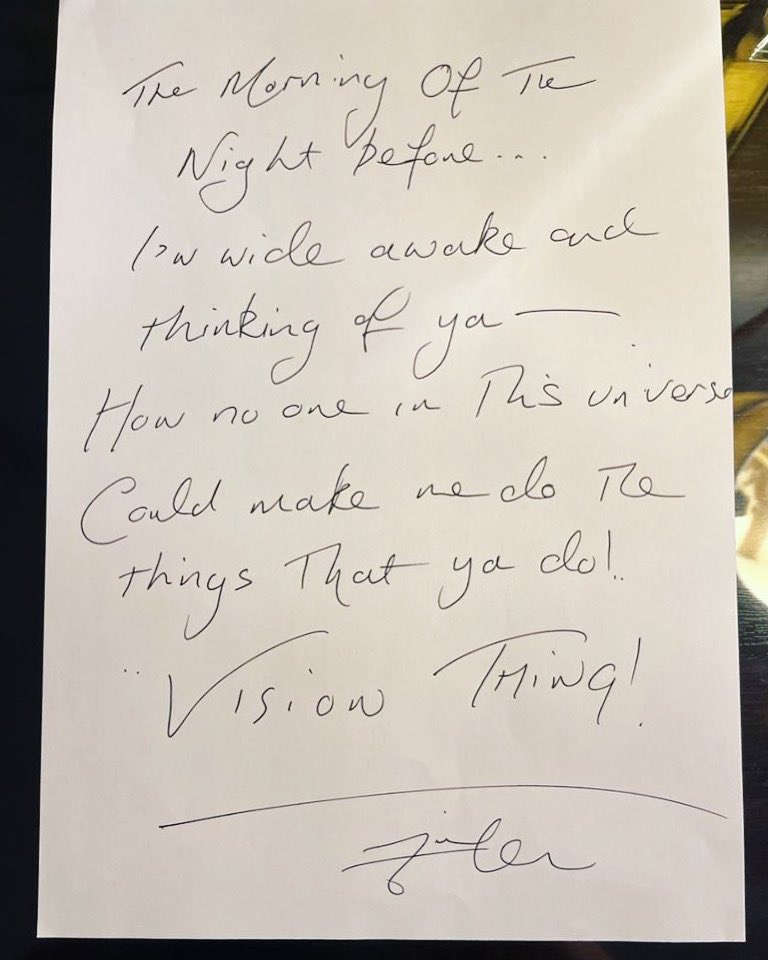 The Morning Of The
Night before...
I'm wide awake and
thinking of ya —
How no one in This universe
Could make me do The
things That ya do!..
Vision Thing!